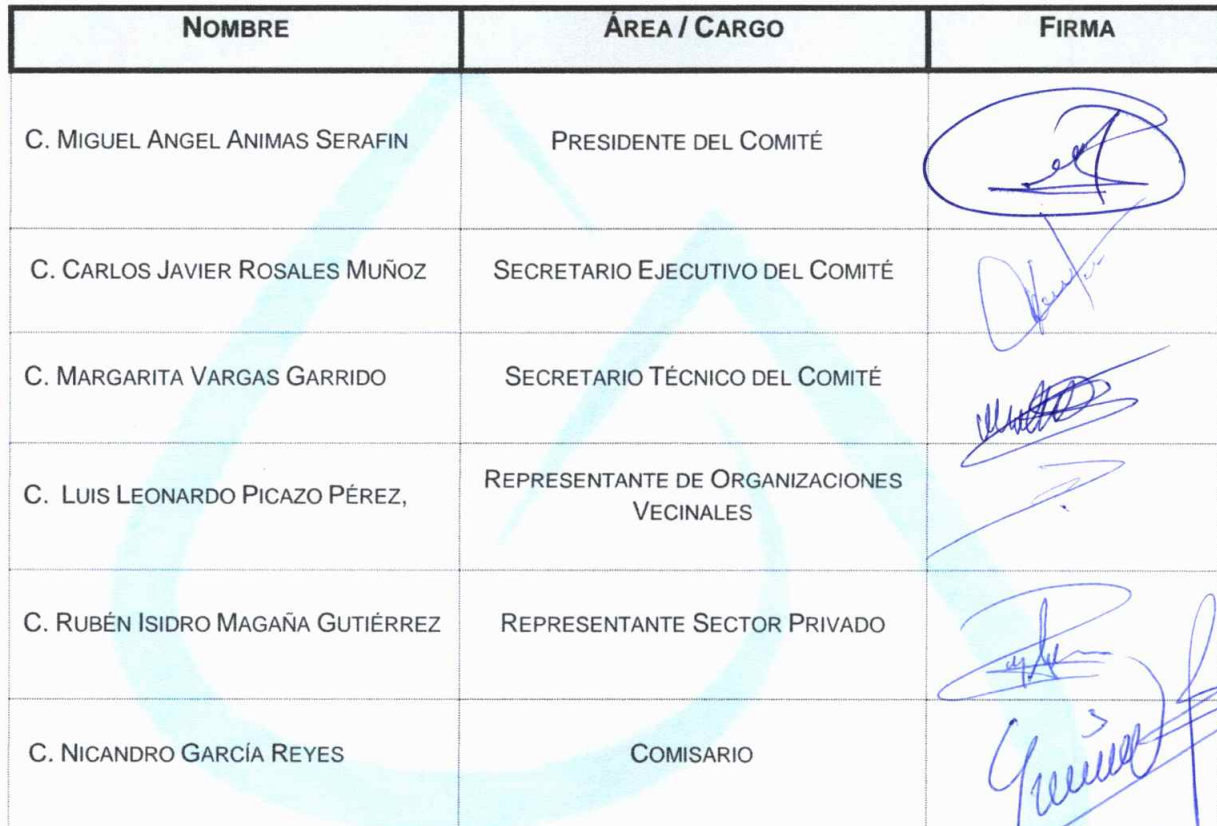 NOMBRE ÁREA / CARGO FIRMA
C. MIGUEL ANGEL ANIMAS SERAFIN PRESIDENTE DEL COMITÉ
C. CARLOS JAVIER ROSALES MUÑOZ SECRETARIO EJECUTIVO DEL COMITÉ
C. MARGARITA VARGAS GARRIDO SECRETARIO TÉCNICO DEL COMITÉ
C. LUIS LEONARDO PICAZO PÉREZ, REPRESENTANTE DE ORGANIZACIONES
VECINALES
C. RUBÉN ISIDRO MAGAÑA GUTIÉRREZ REPRESENTANTE SECTOR PRIVADO
C. NICANDRO GARCÍA REYES COMISARIO